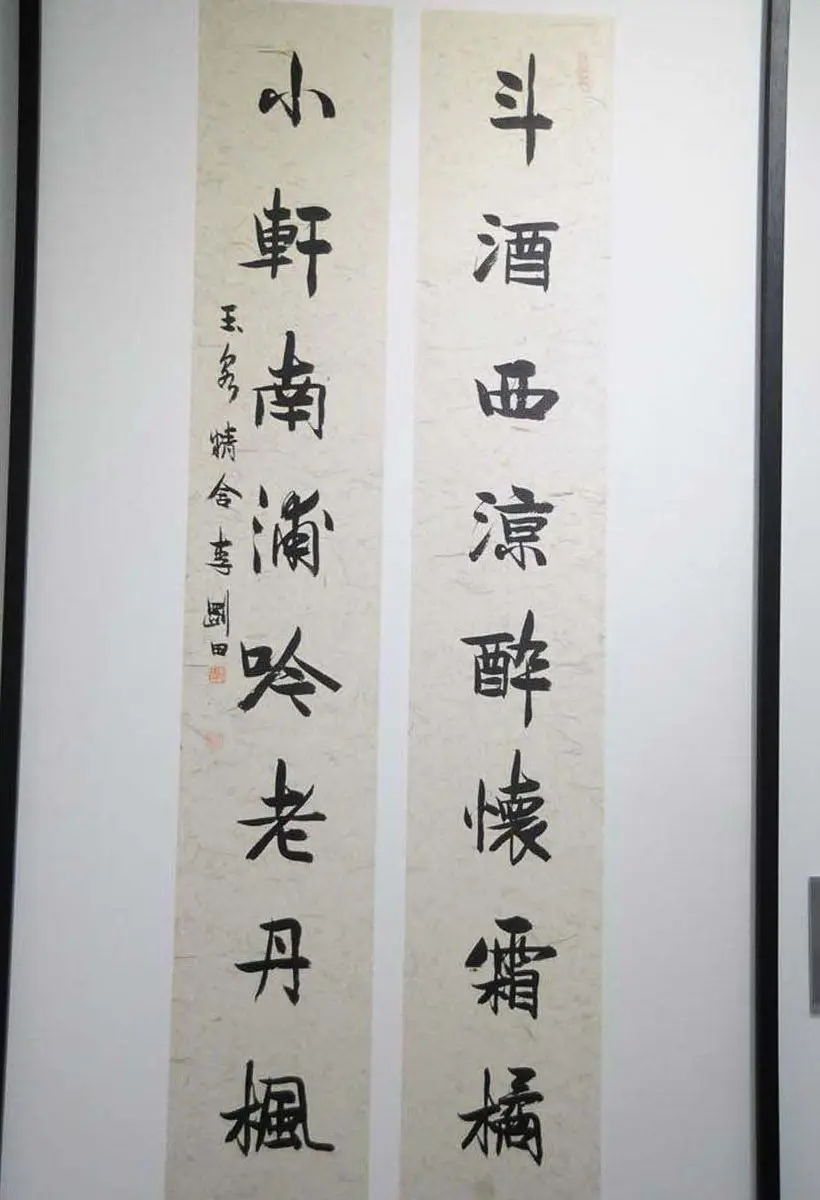 斗酒西涼醉懷霜橘
小軒南浦吟老丹楓
玉泉情舍李剛田